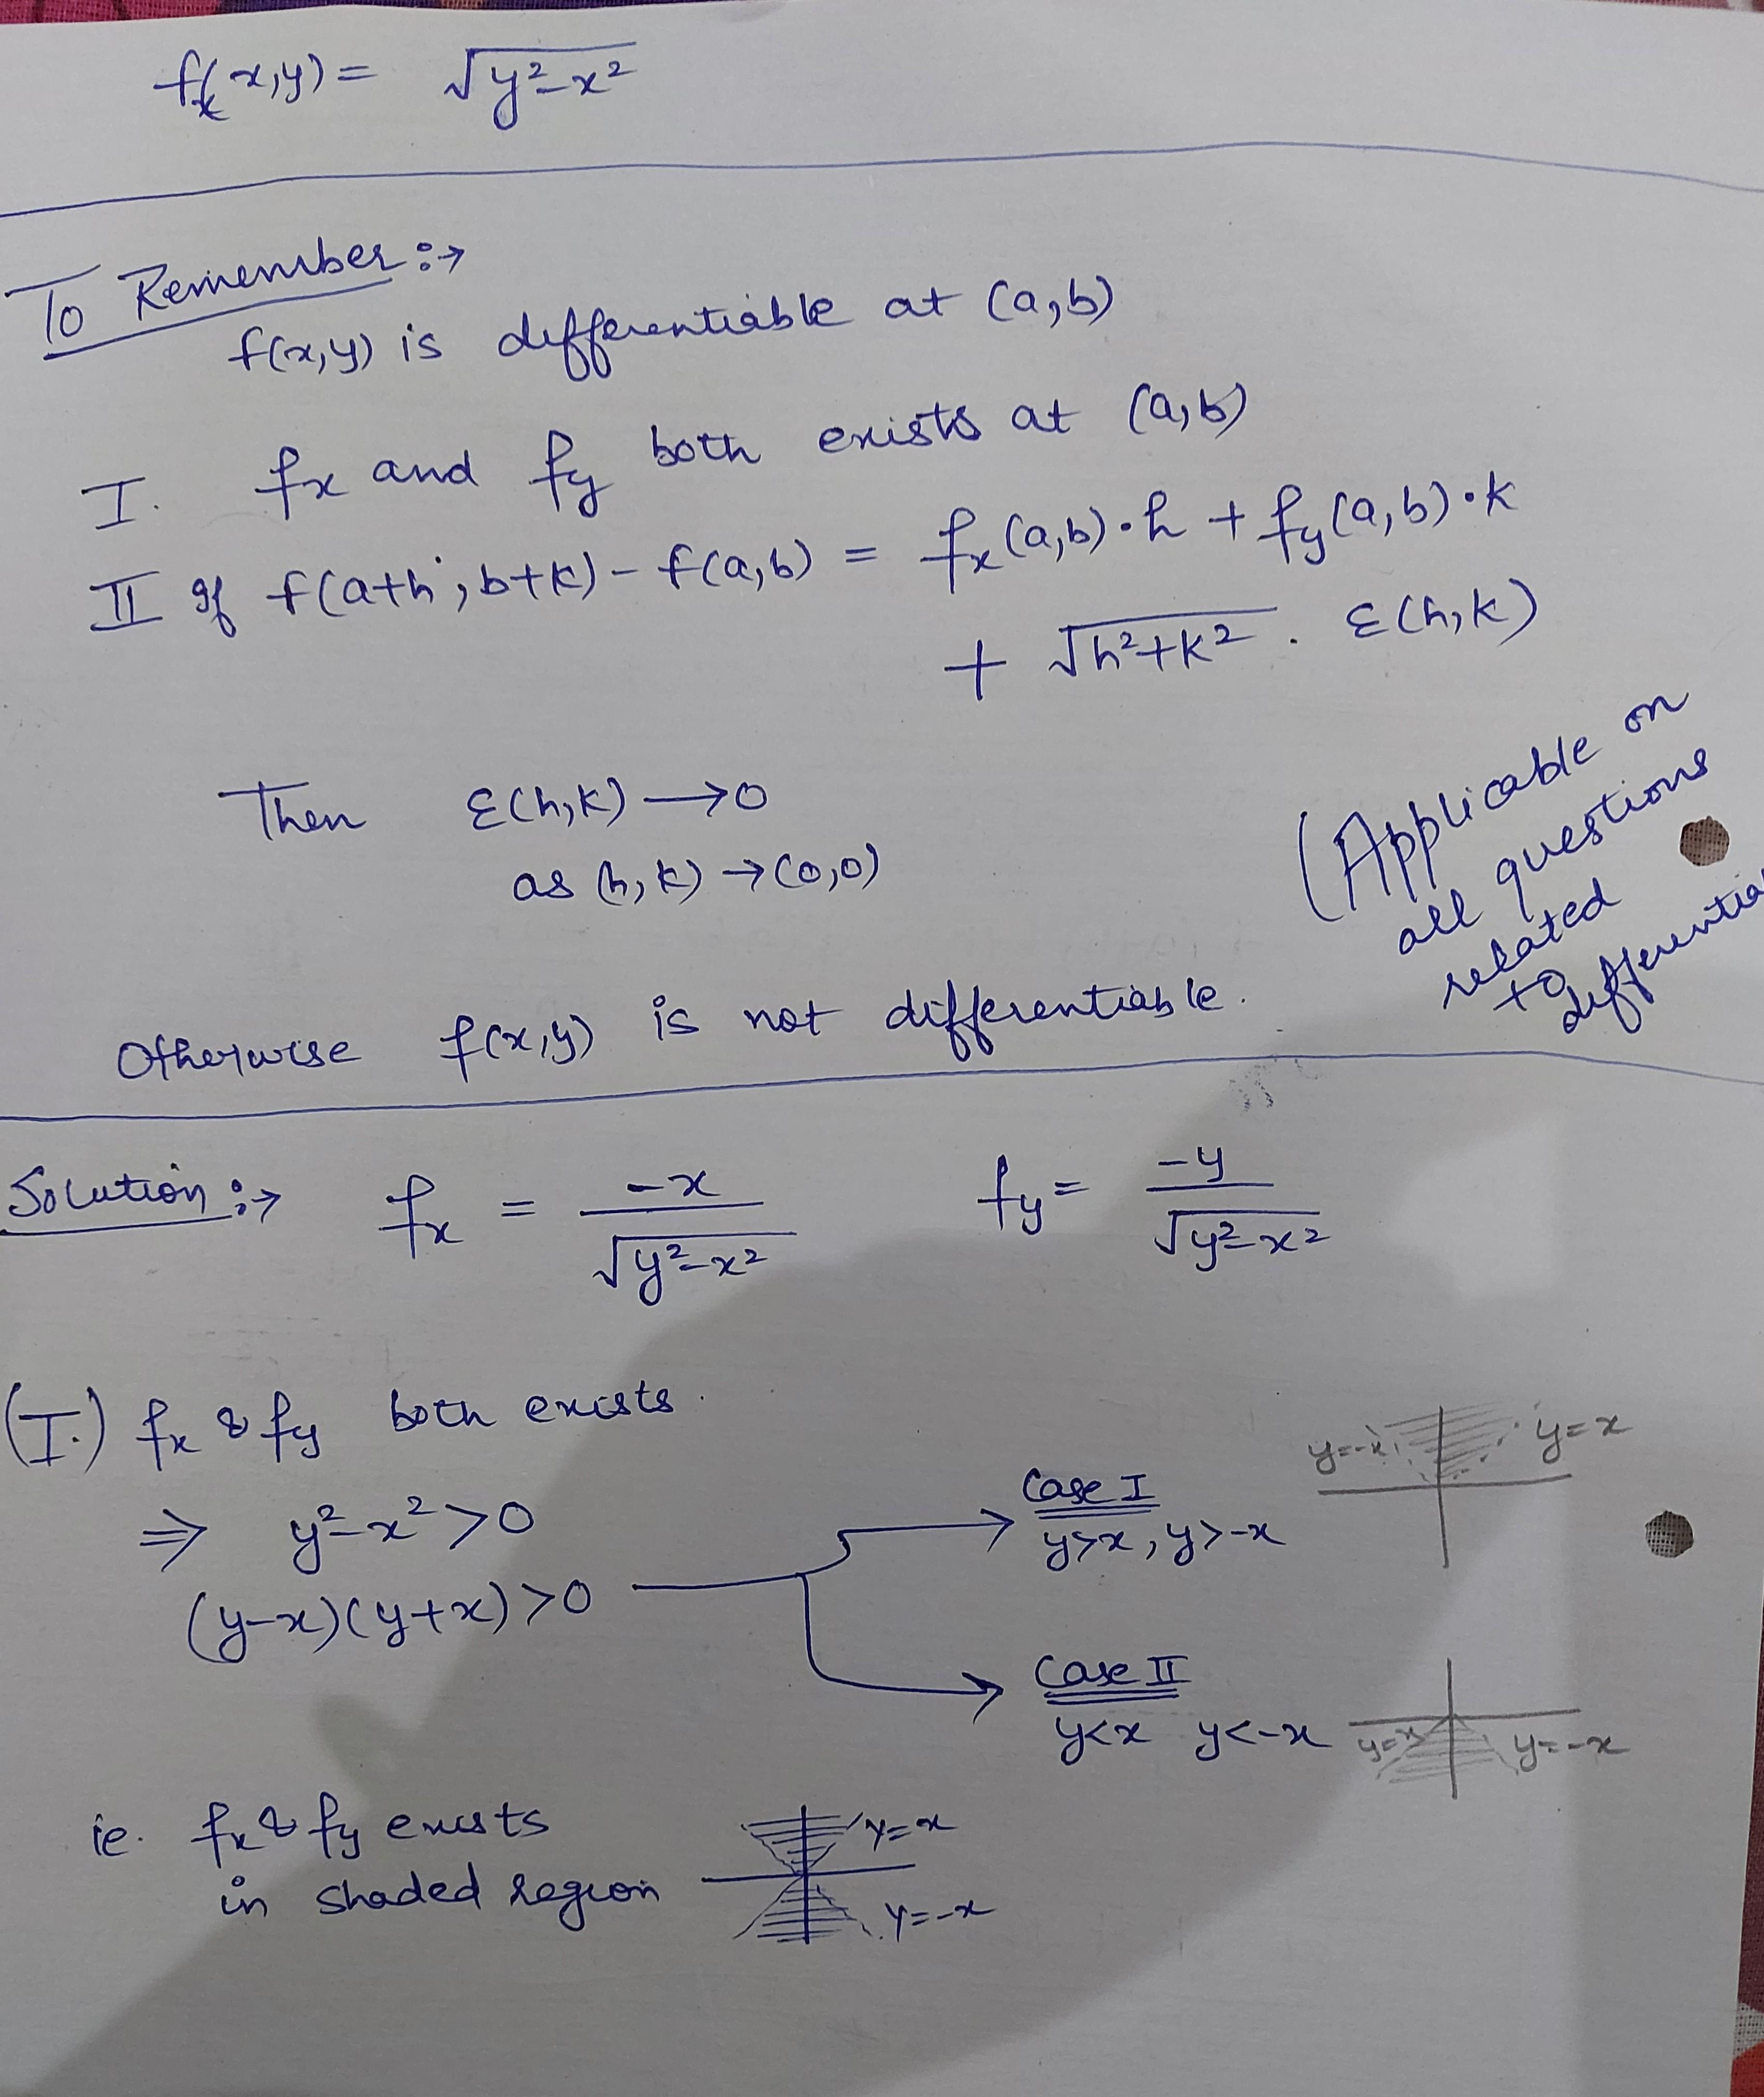 f(x,y) = √(y²-x²)
To Remember :→
f(x,y) is differentiable at (a,b)
I. fx and fy both exists at (a,b)
II If f(a+h, b+k) - f(a,b) = fx(a,b)·h + fy(a,b)·k
+ √(h²+k²) . ε(h,k)
Then ε(h,k) → 0
as (h,k) → (0,0)
(Applicable on
all questions
related
to
differentia
Otherwise f(x,y) is not differentiable.
Solution :→ fx = -x/√(y²-x²) fy = -y/√(y²-x²)
(I.) fx & fy both exists.
⇒ y²-x² > 0
(y-x)(y+x) > 0
Case I
y>x, y>-x
y=-x y=x
Case II
y<x y<-x
y=x y=-x
ie. fx & fy exists
in shaded region
y=x
y=-x